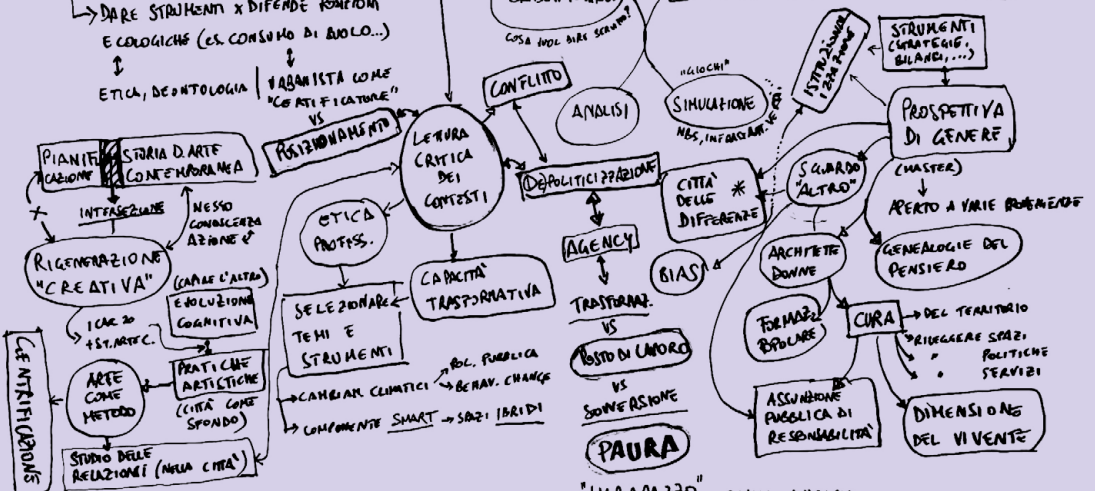 DARE STRUMENTI X DIFENDE FUNZIONI
ECOLOGICHE (ES. CONSUMO DI SUOLO...)
ETICA, DEONTOLOGIA
URBANISTA COME
"CERTIFICATORE"
VS
POSIZIONAMENTO
PIANIFI
CAZIONE
STORIA D. ARTE
CONTEMPORANEA
INTERSEZIONE
NESSO
CONOSCENZA
AZIONE
RIGENERAZIONE
"CREATIVA"
(CAPIRE L'ALTRO)
EVOLUZIONE
COGNITIVA
1 CAR 20
+ ST. ARTE C.
PRATICHE
ARTISTICHE
(CITTÀ COME
SFONDO)
ARTE
COME
METODO
GENTRIFICAZIONE
STUDIO DELLE
RELAZIONI (NELLA CITTÀ)
COSA VUOL DIRE
CONFLITTO
LETTURA
CRITICA
DEI
CONTESTI
ETICA
PROFESS.
SELEZIONARE
TEMI E
STRUMENTI
CAPACITÀ
TRASFORMATIVA
CAMBIAM. CLIMATICI
POL. PUBBLICA
BEHAV. CHANGE
COMPONENTE SMART → SPAZI IBRIDI
ANALISI
"GIOCHI"
SIMULAZIONE
NBS, INFRASTR. VERDI
(DE)POLITICIZZAZIONE
AGENCY
TRASFORMAZ.
VS
POSTO DI LAVORO
VS
SOVVERSIONE
PAURA
CITTÀ
DELLE *
DIFFERENZE
BIAS
ISTITUZIONAL
IZZAZIONE
STRUMENTI
(STRATEGIE,
BILANCI, ...)
PROSPETTIVA
DI GENERE
(MASTER)
APERTO A VARIE PROVENIENZE
SGUARDO
"ALTRO"
ARCHITETTE
DONNE
GENEALOGIE DEL
PENSIERO
FORMAZ.
POPOLARE
CURA
DEL TERRITORIO
RILEGGERE SPAZI
" POLITICHE
" SERVIZI
ASSUNZIONE
PUBBLICA DI
RESPONSABILITÀ
DIMENSIONE
DEL VIVENTE